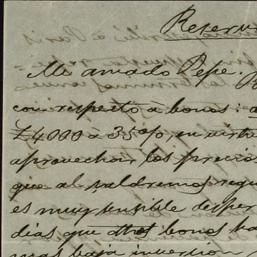 Reserv
Mi amado Pepe. R
con respecto á bonos: a
£4000 á 35 o/o en virtu
aprovechar los precios
que al valdremos requ
es muy sensible desper
días que los bonos ha
mas baja inversion